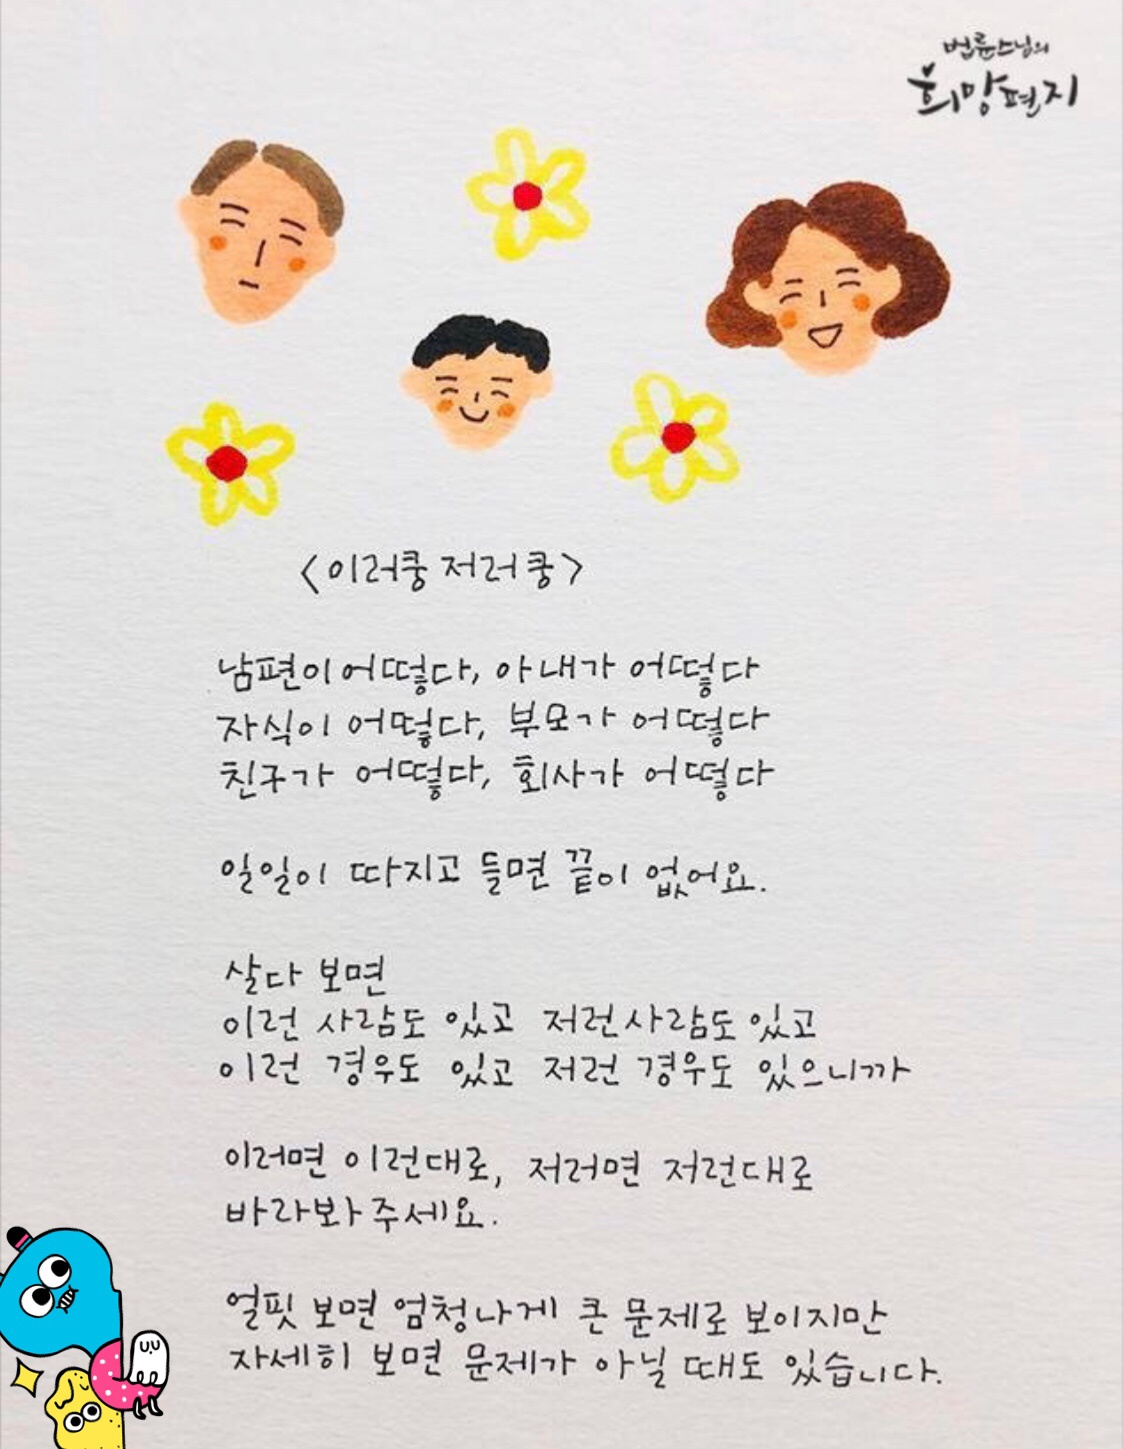 법륜스님의
희망편지
<이러쿵 저러쿵>
남편이 어떻다, 아내가 어떻다
자식이 어떻다, 부모가 어떻다
친구가 어떻다, 회사가 어떻다
일일이 따지고 들면 끝이 없어요.
살다 보면
이런 사람도 있고 저런 사람도 있고
이런 경우도 있고 저런 경우도 있으니까
이러면 이런대로, 저러면 저런대로
바라봐 주세요.
얼핏 보면 엄청나게 큰 문제로 보이지만
자세히 보면 문제가 아닐 때도 있습니다.